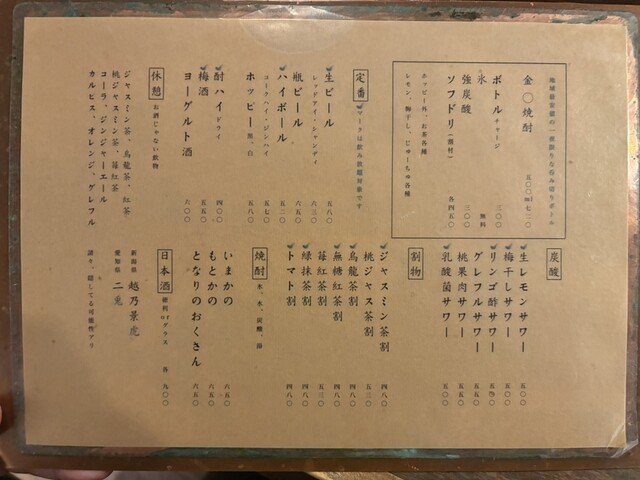 金〇焼酎 五〇〇ml 七二〇
ボトルチャージ 三〇〇
氷 無料
強炭酸 三〇〇
ソフドリ(割材) 各四五〇
ホッピー外、お茶各種
レモン、梅干し、じゅーちゅ各種
定番 マークは飲み放題対象です
生ビール 五八〇
レッドアイ・シャンディ 六三〇
瓶ビール 六五〇
ハイボール 五二〇
コークハイ・ジンハイ 五七〇
ホッピー 黒、白 五八〇
酎ハイ ドライ 四〇〇
梅酒 五五〇
ヨーグルト酒 六〇〇
休憩 お酒じゃない飲物
ジャスミン茶、烏龍茶、紅茶
桃ジャスミン茶、苺紅茶
コーラ、ジンジャーエール
カルピス、オレンジ、グレフル
炭酸
生レモンサワー 五〇〇
梅干しサワー 五〇〇
リンゴ酢サワー 五五〇
グレフルサワー 五五〇
桃果肉サワー 五五〇
乳酸菌サワー 五〇〇
割物
ジャスミン茶割 四八〇
桃ジャス茶割 五三〇
烏龍茶割 四八〇
無糖紅茶割 四八〇
苺紅茶割 五三〇
緑抹茶割 四八〇
トマト割 四八〇
焼酎 氷、水、炭酸、湯
いまかの 六五〇
もとかの 六五〇
となりのおくさん 六五〇
日本酒 徳利orグラス 各九〇〇
新潟県 越乃景虎
愛知県 二兎
譲々、隠してる可能性アリ